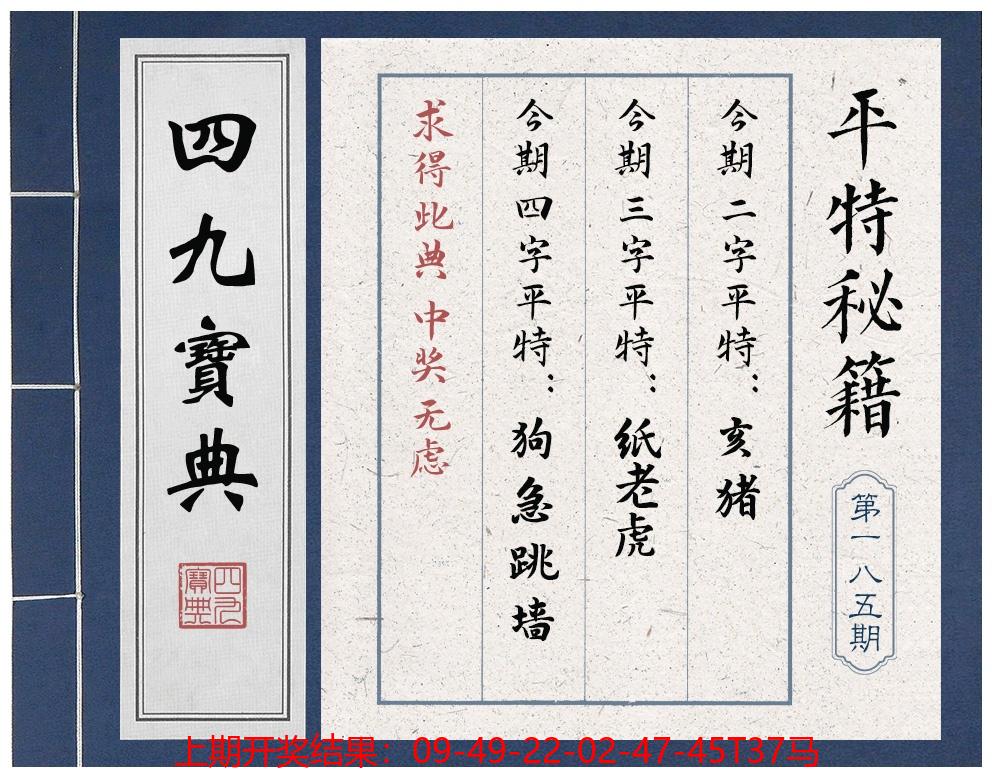 平特秘籍
第一八五期
今期二字平特：亥猪
今期三字平特：纸老虎
今期四字平特：狗急跳墙
求得此典 中奖无虑
四九寶典
四九寶典
上期开奖结果：09-49-22-02-47-45T37马